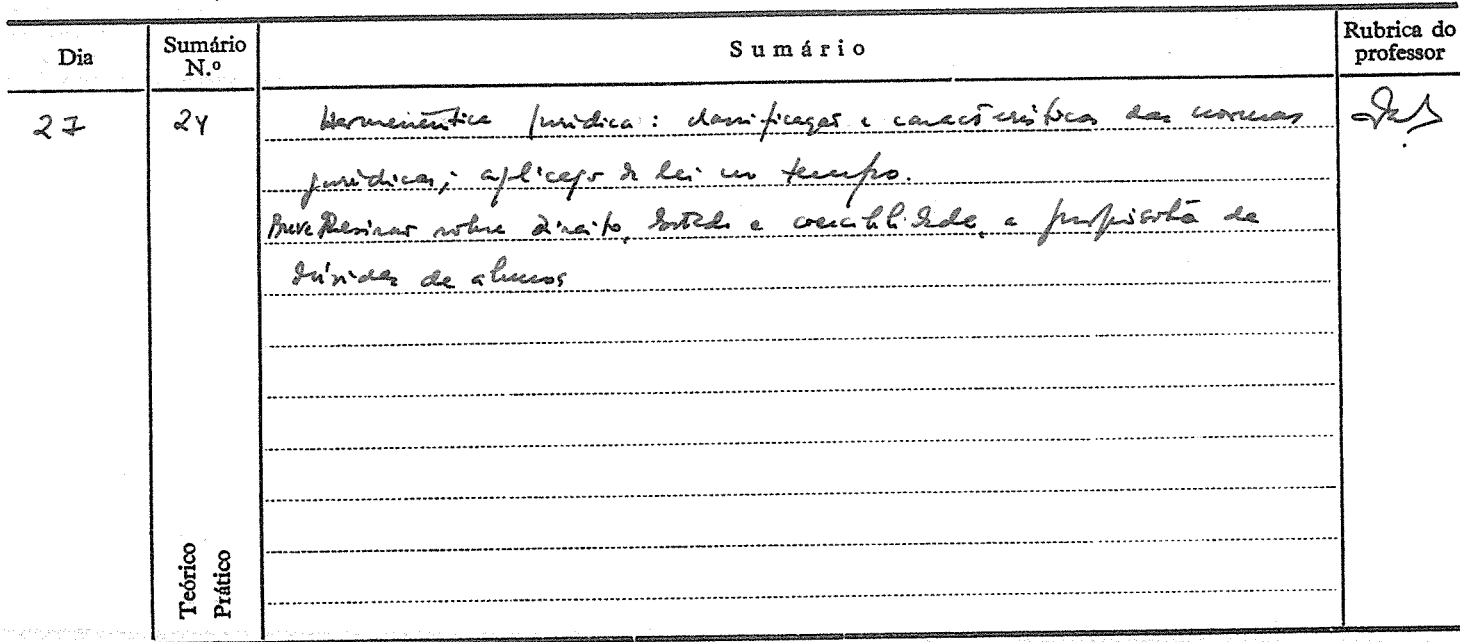 Dia Sumário N.º Sumário Rubrica do professor
27 24 Hermenêutica jurídica: classificação e características das normas
jurídicas; aplicação da lei no tempo.
Breve sobre direito, Estado e coercibilidade, a propósito de
dúvidas de alunos
Teórico
Prático